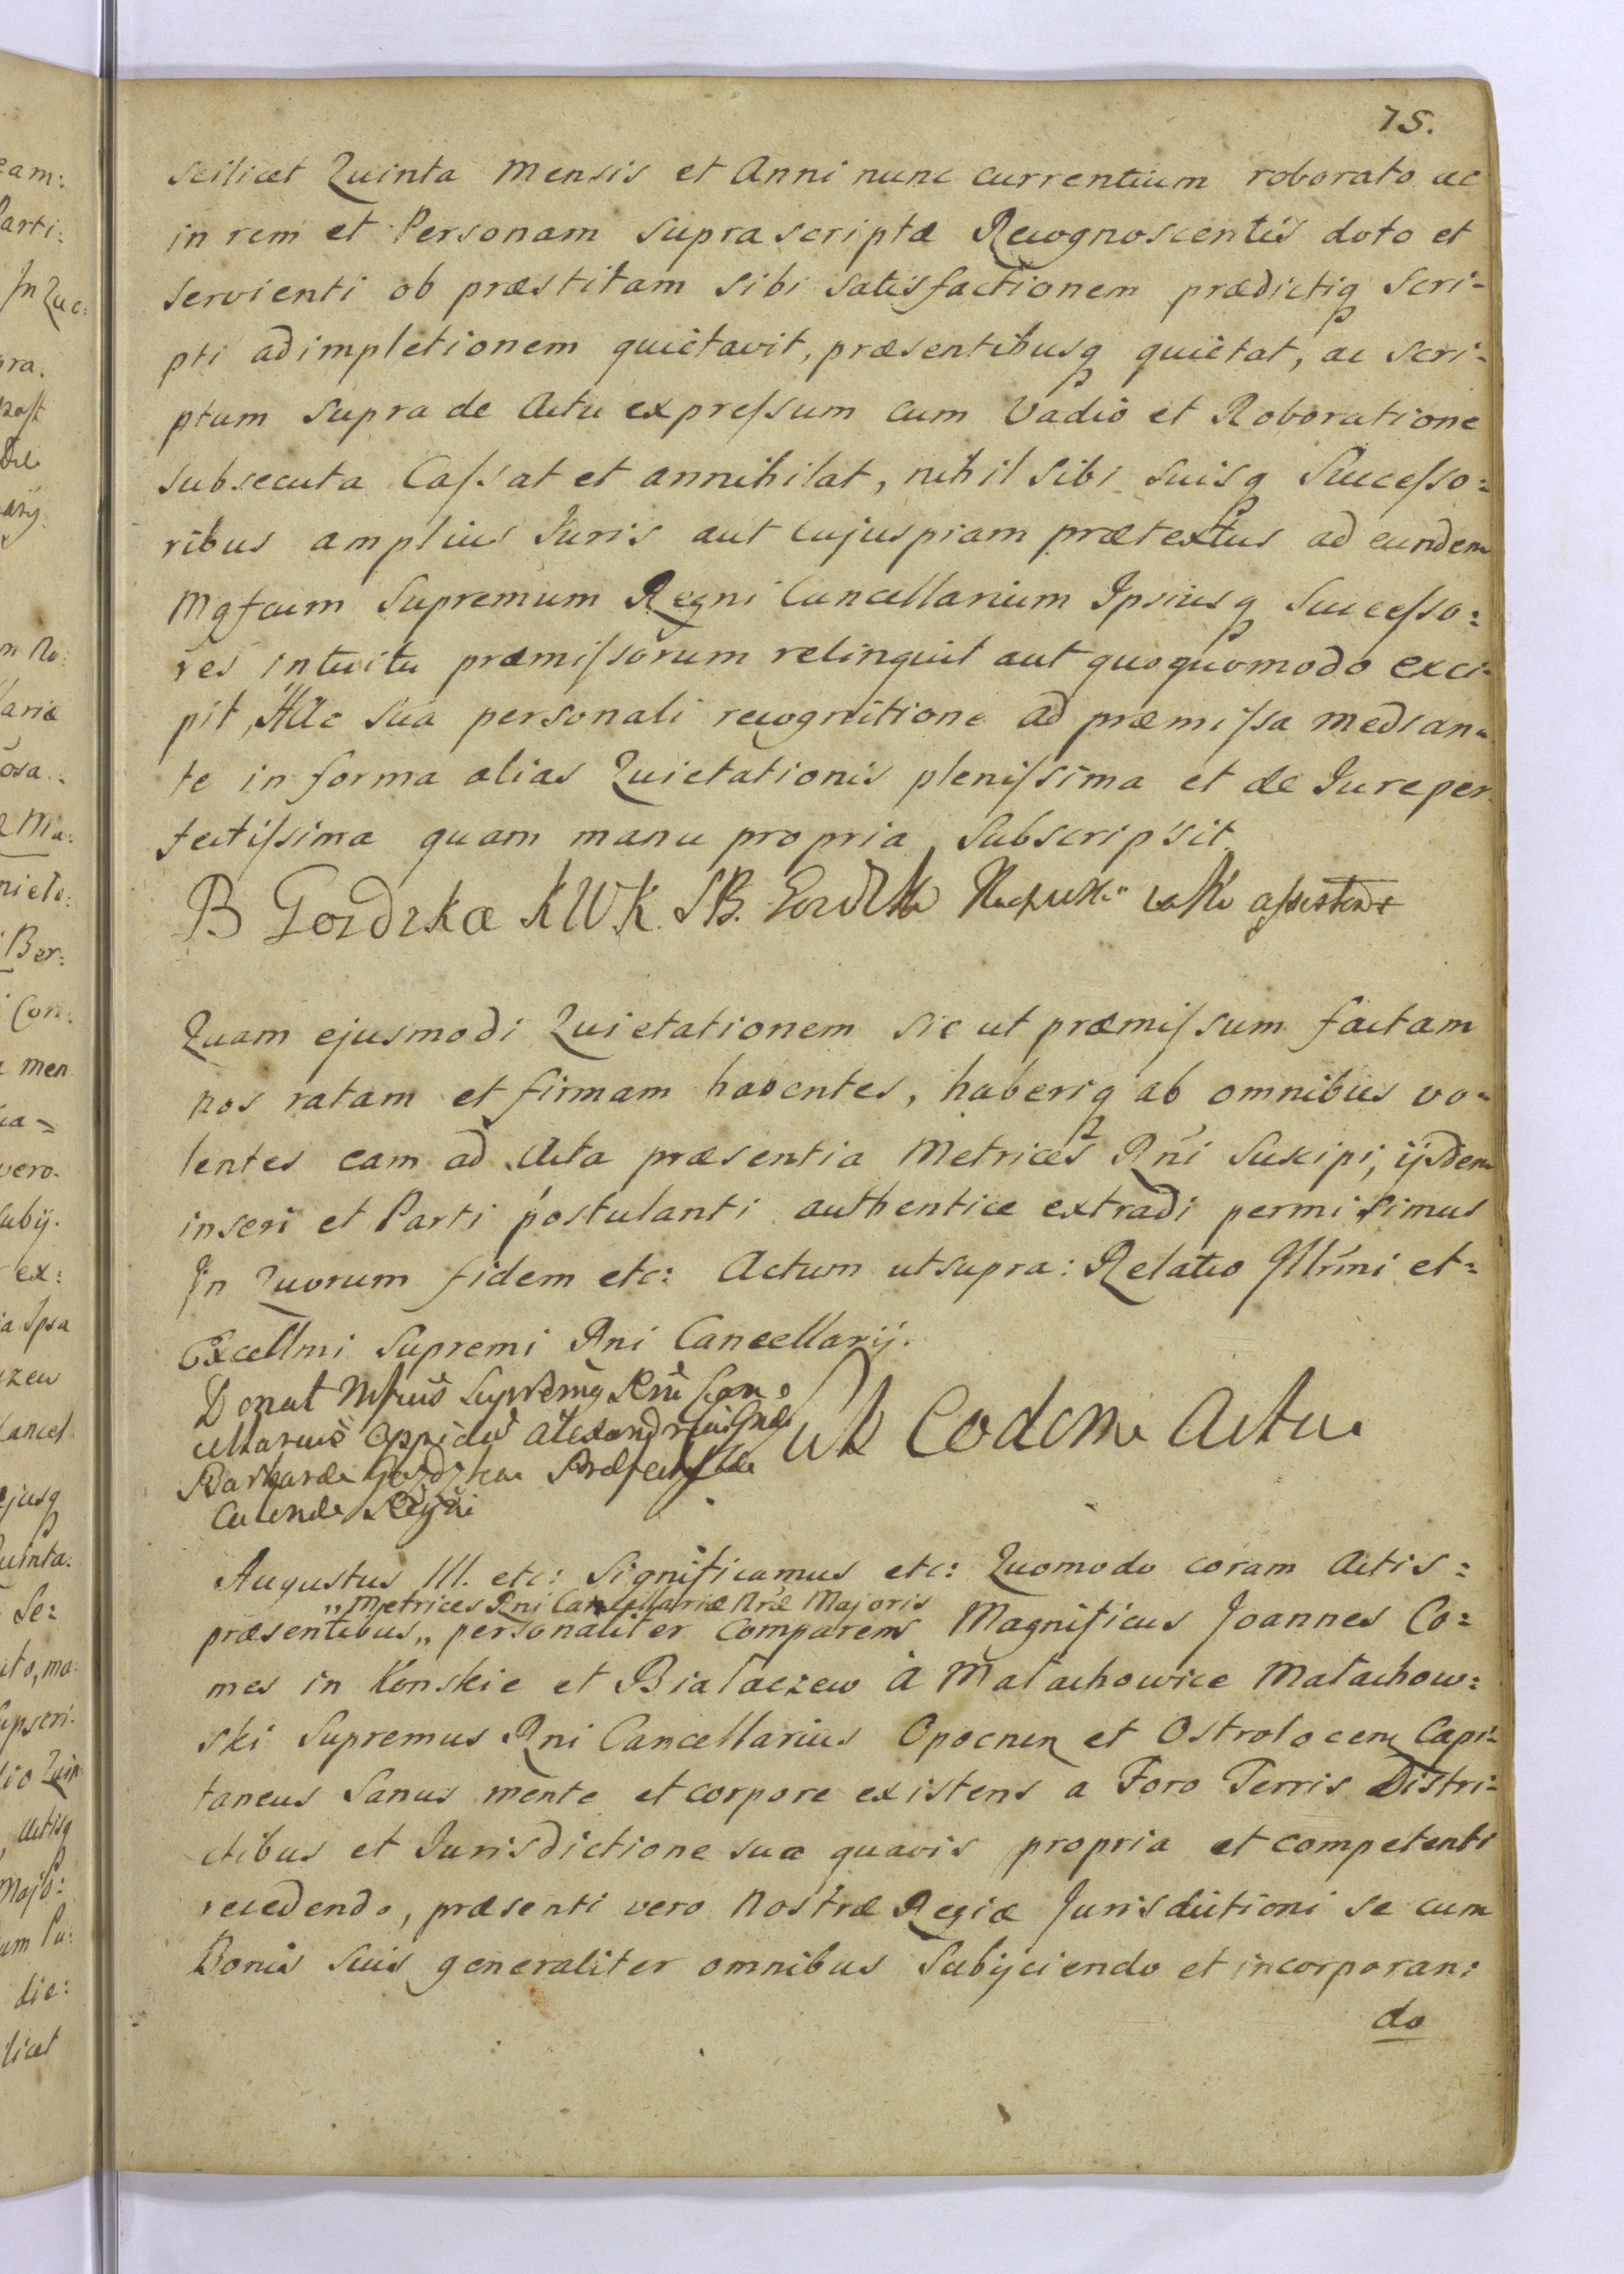 75.
scilicet Quinta Mensis et Anni nunc currentium roborato ac
in rem et Personam suprascriptæ Recognoscentis dato et
servienti ob præstitam sibi satisfactionem prædictiq scri-
pti adimpletionem quietavit, præsentibusq quietat, ac scri-
ptum supra de Actu expressum cum Vadio et Roboratione
subsecuta Cassat et annihilat, nihil sibi suisq Successo:
ribus amplius Juris aut cujuspiam prætextus ad eundem
Mgfcum Supremum Regni Cancellarium Ipsiusq Successo:
res intuitu præmissorum relinquit aut quoquomodo exci-
pit, Hac sua personali recognitione ad præmissa median-
te in forma alias Quietationis plenissima et de Jure per
fectissima quam manu propria subscripsit.
B Gozdzka KWK. SB.
Quam ejusmodi Quietationem sic ut præmissum factam
nos ratam et firmam habentes, haberiq ab omnibus vo-
lentes eam ad Acta præsentia Metrices Rni Suscipi, ijsdem
inseri et Parti postulanti authentice extradi permisimus
In Quorum fidem etc: Actum ut supra: Relatio Illrmi et=
Excellmi Supremi Rni Cancellarij.
Donat Mfcus Supremus Rni Can
cellarius Oppidu
Barbaræ Gozdzkæ Præfectissæ
Culinæ Regni
Sub Eodem Actu
Augustus III. etc: Significamus etc: Quomodo coram Actis=
„Metrices Rni Cancellariæ Nræ Majoris
præsentibus„ personaliter Comparens Magnificus Joannes Co:
mes in Konskie et Białaczew à Małachowice Małachow:
ski Supremus Rni Cancellarius Opocnen et Ostrolocen Capi-
taneus Sanus mente et corpore existens a Foro Terris Distri-
ctibus et Jurisdictione sua quavis propria et competenti
recedendo, præsenti vero Nostræ Regiæ Jurisdictioni se cum
Bonis suis generaliter omnibus Subijciendo et incorporan:
do